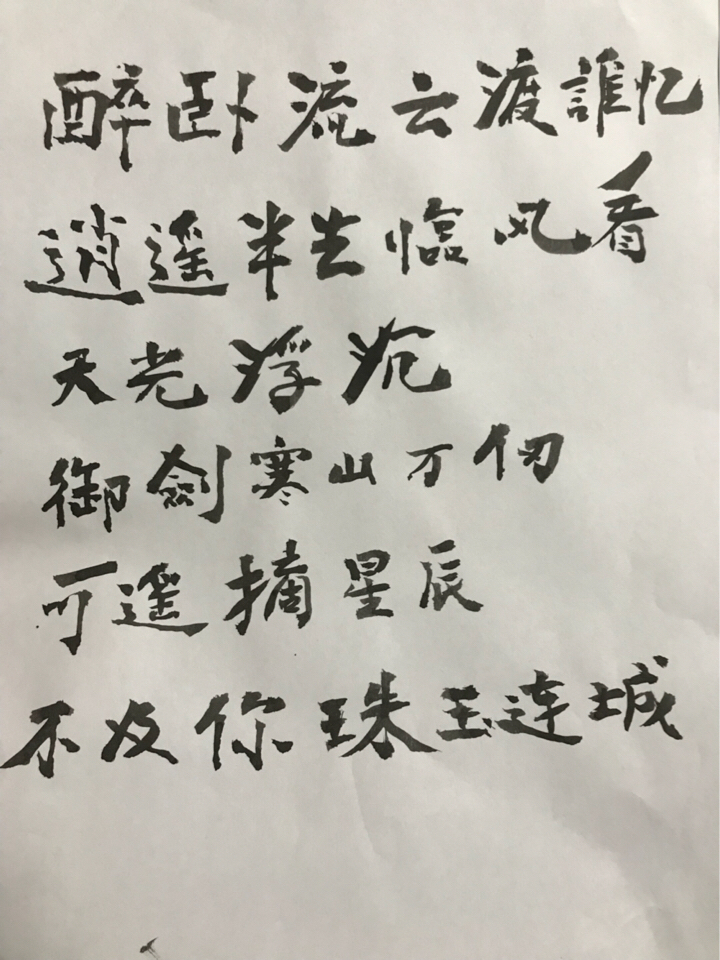 醉卧流云渡誰忆
逍遥半生临风看
天光浮沉
御劍寒山万仞
可遥摘星辰
不及你珠玉连城